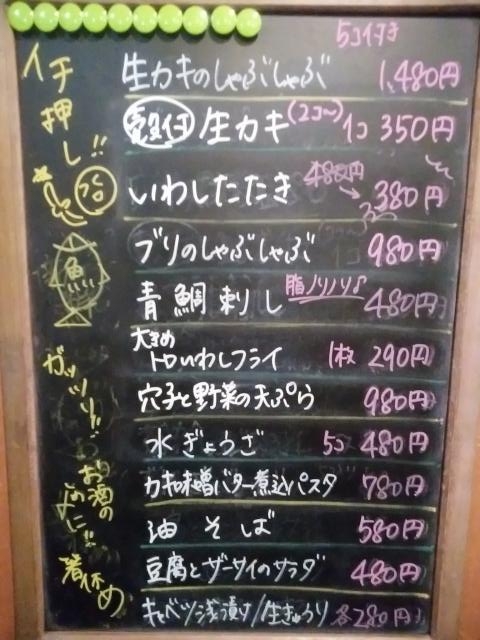 5コ付き
生カキのしゃぶしゃぶ 1,480円
殻付 生カキ (2コ〜) 1コ 350円
いわしたたき 480円 → 380円
ブリのしゃぶしゃぶ 980円
青鯛刺し 脂ノリノリ♪ 480円
大きめ
トロいわしフライ 1枚 290円
穴子と野菜の天ぷら 980円
水ぎょうざ 5コ 480円
カキ味噌バター煮込パスタ 780円
油そば 580円
豆腐とザーサイのサラダ 480円
キャベツ浅漬け/生きゅうり 各280円
イチ押し!!
魚
ガッツリ!!
お酒の
箸休め